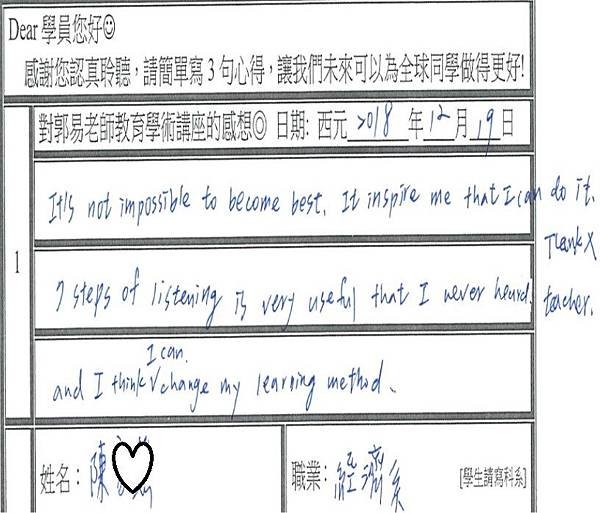 Dear 學員您好☺
感謝您認真聆聽，請簡單寫3句心得，讓我們未來可以為全球同學做得更好!
對郭易老師教育學術講座的感想◎ 日期: 西元 2018 年 12 月 19 日
1
It's not impossible to become best. It inspire me that I can do it.
Thank
teacher.
7 steps of listening is very useful that I never heard.
I can.
and I think √ change my learning method.
姓名：陳
職業：經濟系 [學生請寫科系]